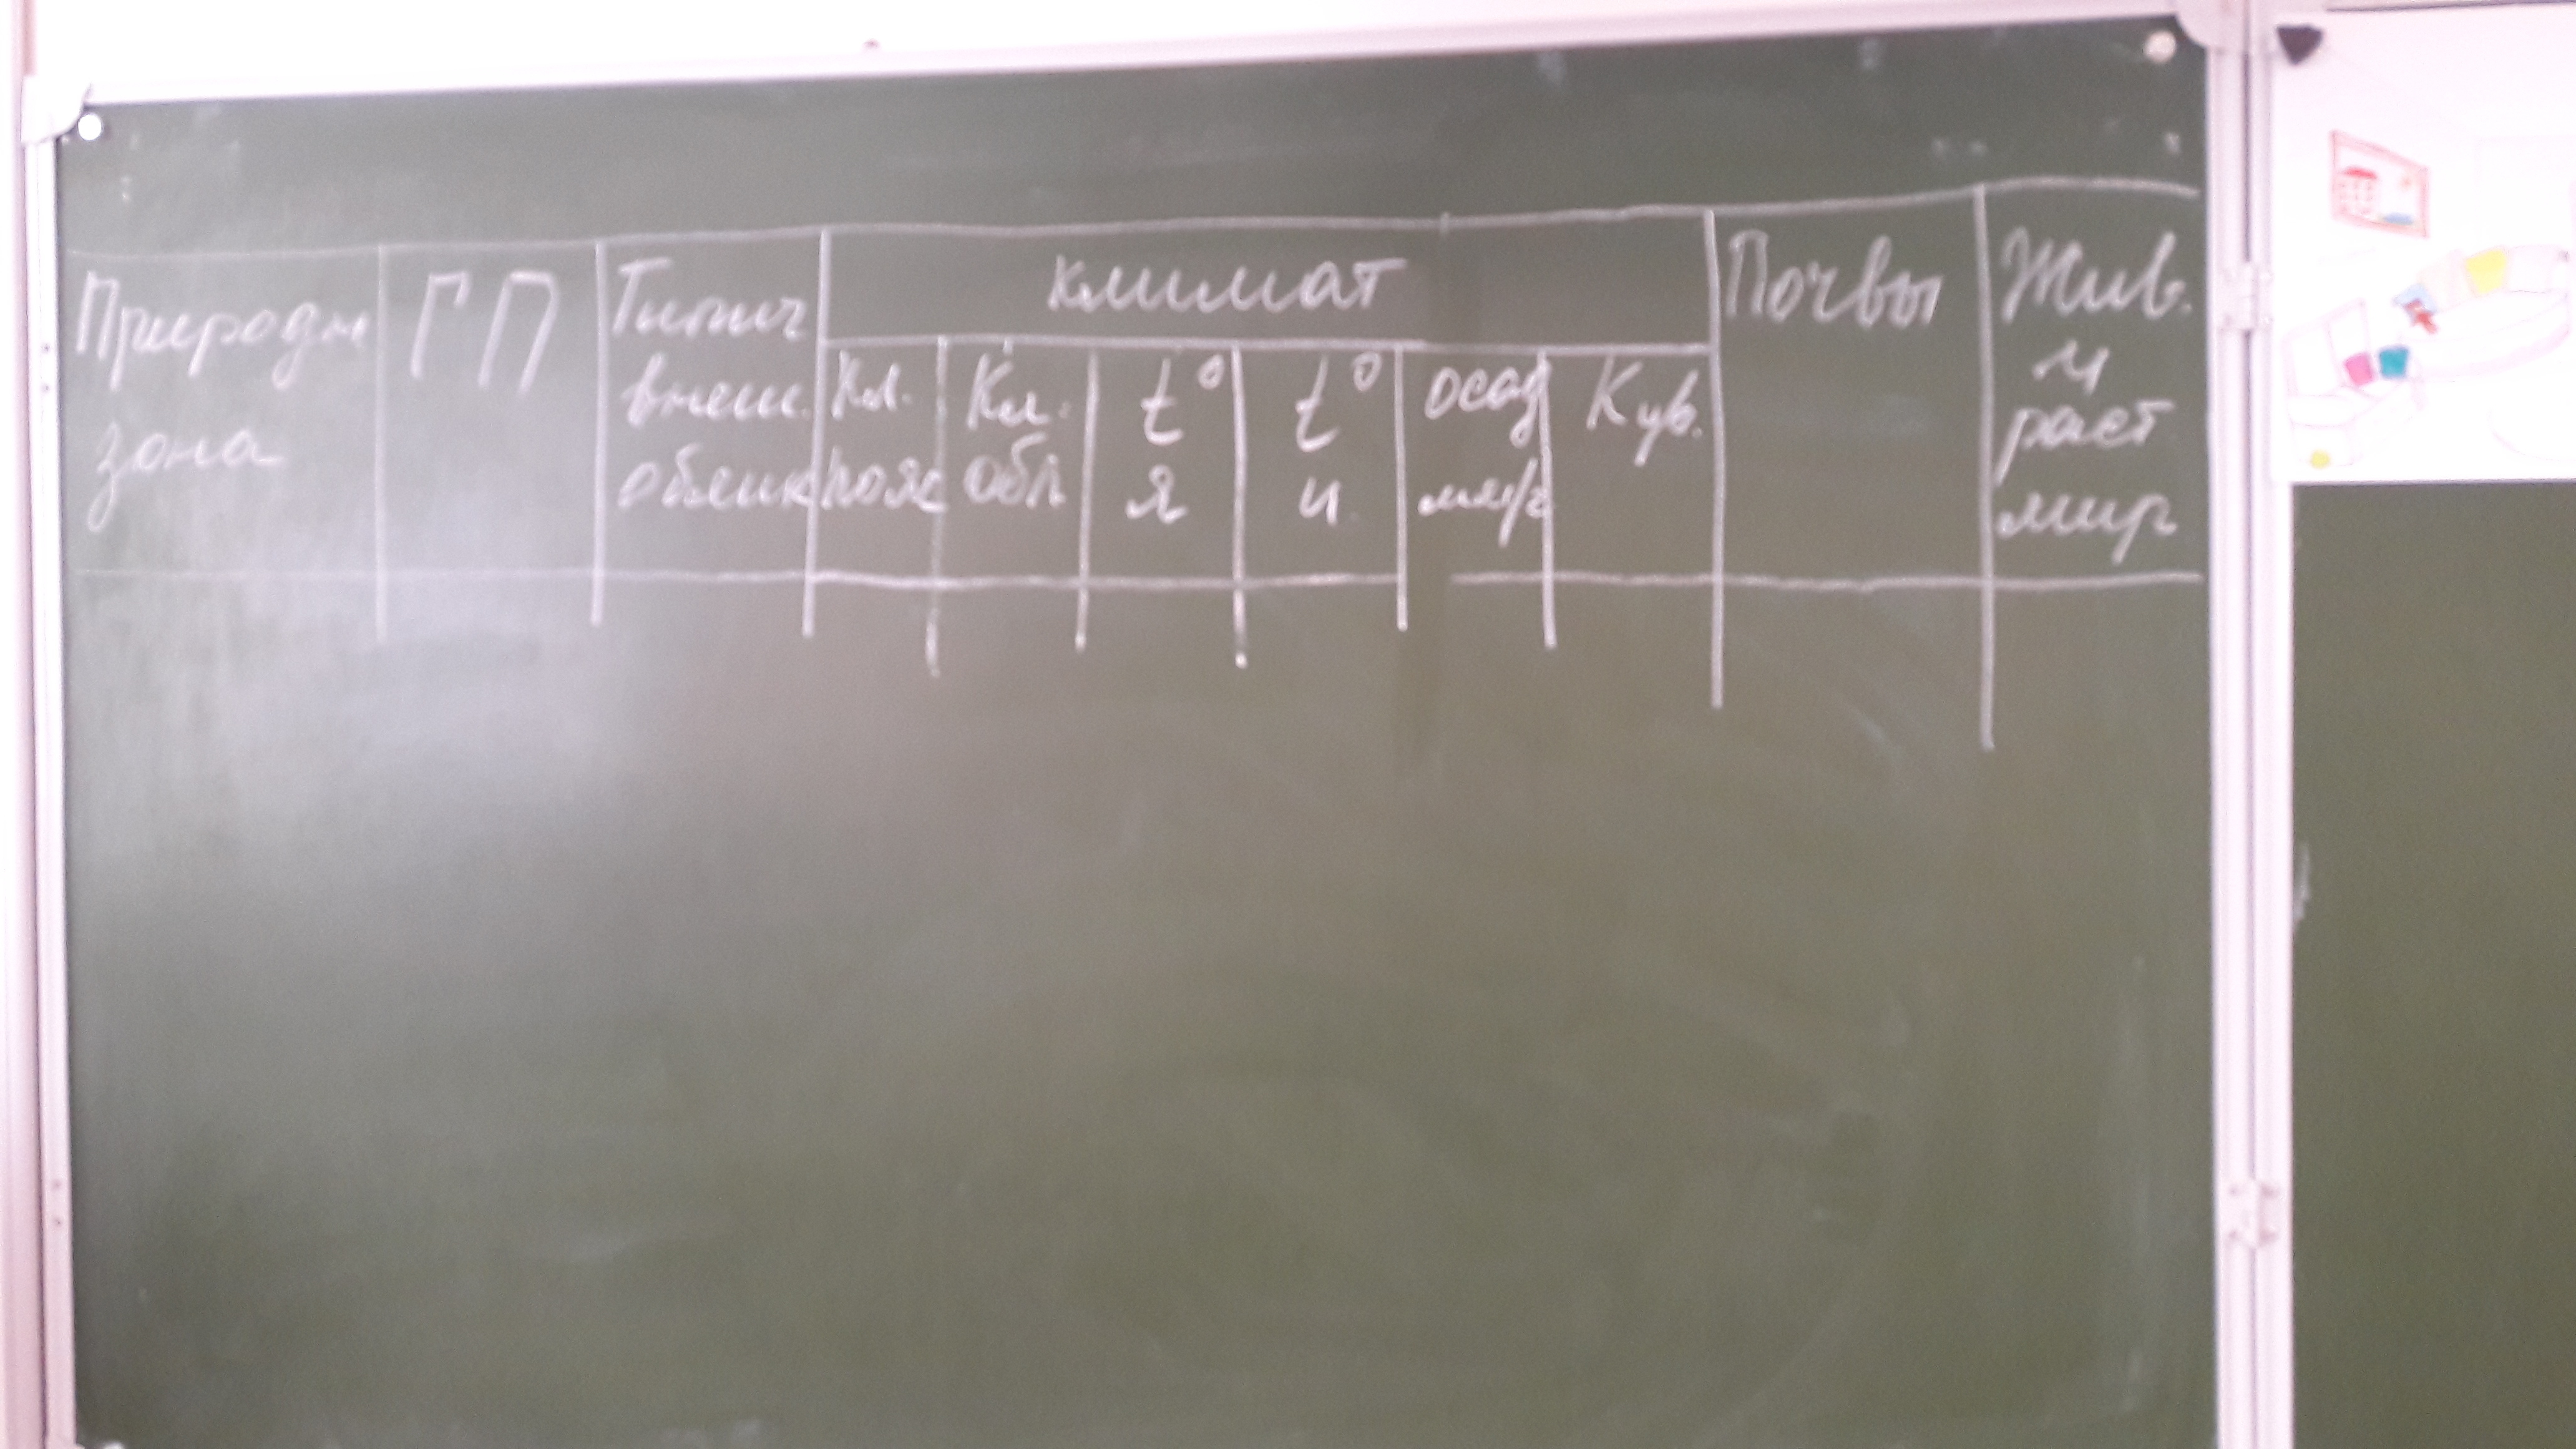 Природн
зона
ГП
Типич
внеш.
облик
климат
Кл.
пояс
Кл.
обл
t°
я
t°
и
осад
мм/г
К ув.
Почвы
Жив.
и
раст
мир